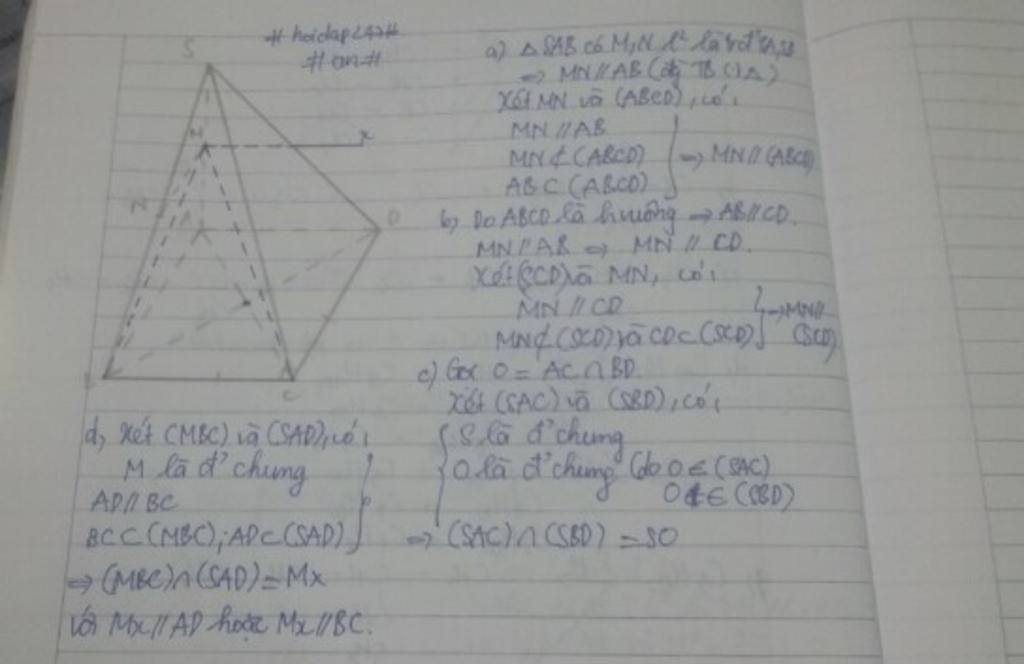 # hoidap247#
# on #
S
M
x
N
A
D
C
a) △ SAB có M,N l² là tđ' SA,SB
⇒ MN // AB (đg TB (1△)
Xét MN và (ABCD), có:
MN // AB
MN ⊄ (ABCD) ⇒ MN // (ABCD)
AB ⊂ (ABCD)
b) Do ABCD là hvuông ⇒ AB // CD.
MN // AB ⇒ MN // CD.
Xét (SCD) và MN, có:
MN // CD
MN ⊄ (SCD) và CD ⊂ (SCD) ⇒ MN // (SCD)
c) Gọi O = AC ∩ BD
Xét (SAC) và (SBD), có:
S là đ' chung
O là đ' chung (do O ∈ (SAC)
O ∈ (SBD)
⇒ (SAC) ∩ (SBD) = SO
d, Xét (MBC) và (SAD), có:
M là đ' chung
AD // BC
BC ⊂ (MBC); AD ⊂ (SAD)
⇒ (MBC) ∩ (SAD) = Mx
Với Mx // AD hoặc Mx // BC.